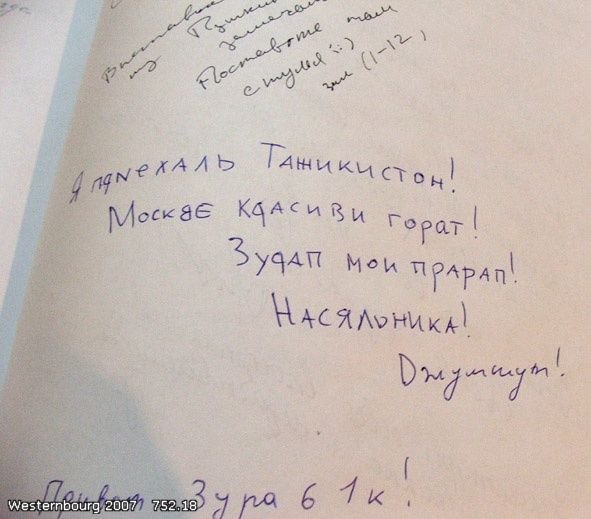 Выставка
из Пушки
замечат
Поставьте там
стулья :)
зал (1-12,
Я приехаль Тажикистон!
Москве красиви горат!
Зудап мои прарап!
Насяльника!
Джумшут!
Привет Зура 6 1к!
Westernbourg 2007 752.18